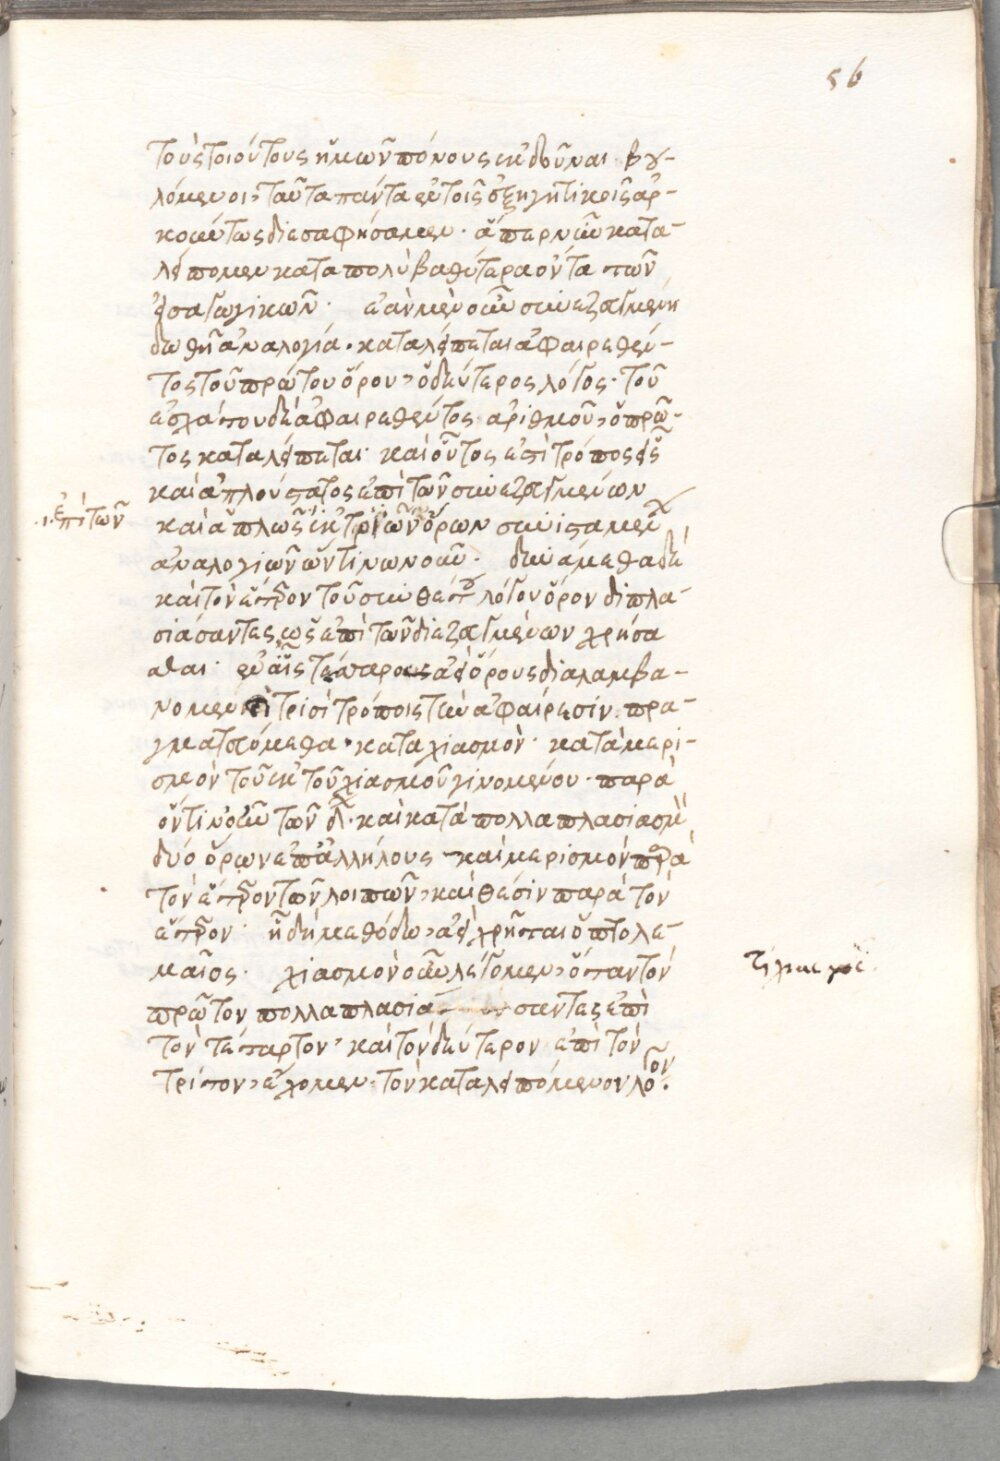 56
τοὺς τοιούτους ἡμῶν πόνους ἐκδοῦναι βου-
λόμενοι, ταῦτα πάντα ἐν τοῖς ἐξηγητικοῖς ἀρ-
κούντως διεσαφήσαμεν. ἅπερ νῦν κατα-
λείπομεν κατὰ πολὺ βαθύτερα ὄντα τῶν
εἰσαγωγικῶν. ἐὰν μὲν οὖν συνεζευγμένη
δωθῇ ἀναλογία. καταλείπεται ἀφαιρεθέν-
τος τοῦ πρώτου ὅρου, ὁ δεύτερος λόγος. τοῦ
ἐσχάτου δὲ ἀφαιρεθέντος ἀριθμοῦ, ὁ πρῶ-
τος καταλείπεται. καὶ οὗτος ἐπὶ τρόπος εἷς
καὶ ἁπλούστατος ἐπὶ τῶν συνεζευγμένων
.ι. ἐπὶ τῶν
καὶ ἁπλῶς ἐκ τριῶν ὅρων συνισταμένων
ἀναλογιῶν ὧντινωνοῦν. δυνάμεθα δὲ
καὶ τὸν ὕστερον τοῦ συνθέτου λόγον ὅρον διπλα-
σιάσαντες ὡς ἐπὶ τῶν διεζευγμένων χρήσα
σθαι. ἐν αἷς τέσσαρας ἀεὶ ὅρους διαλαμβα-
νομεν τρισὶ τρόποις τὴν ἀφαίρεσιν πρα-
γματευόμεθα. κατὰ χιασμὸν. κατὰ μερι-
σμὸν τοῦ ἐκ τοῦ χιασμοῦ γινομένου. παρὰ
ὅντινοῦν τῶν δ. καὶ κατὰ πολλαπλασιασμὸν
δύο ὅρων ἐπ' ἀλλήλους καὶ μερισμὸν παρὰ
τὸν ὕστερον τῶν λοιπῶν, καὶ θέσιν παρὰ τὸν
ὕστερον. ᾗ δὴ μεθόδω, ἀεὶ χρῆται ὁ πτολε-
μαῖος. χιασμὸν οὖν λέγομεν, ὅταν τὸν
τί χιασμός.
πρῶτον πολλαπλασιά σαντες ἐπὶ
τὸν τέταρτον, καὶ τὸν δεύτερον ἐπὶ τὸν
τρίτον, ἔχομεν τὸν καταλειπόμενον λόγον.